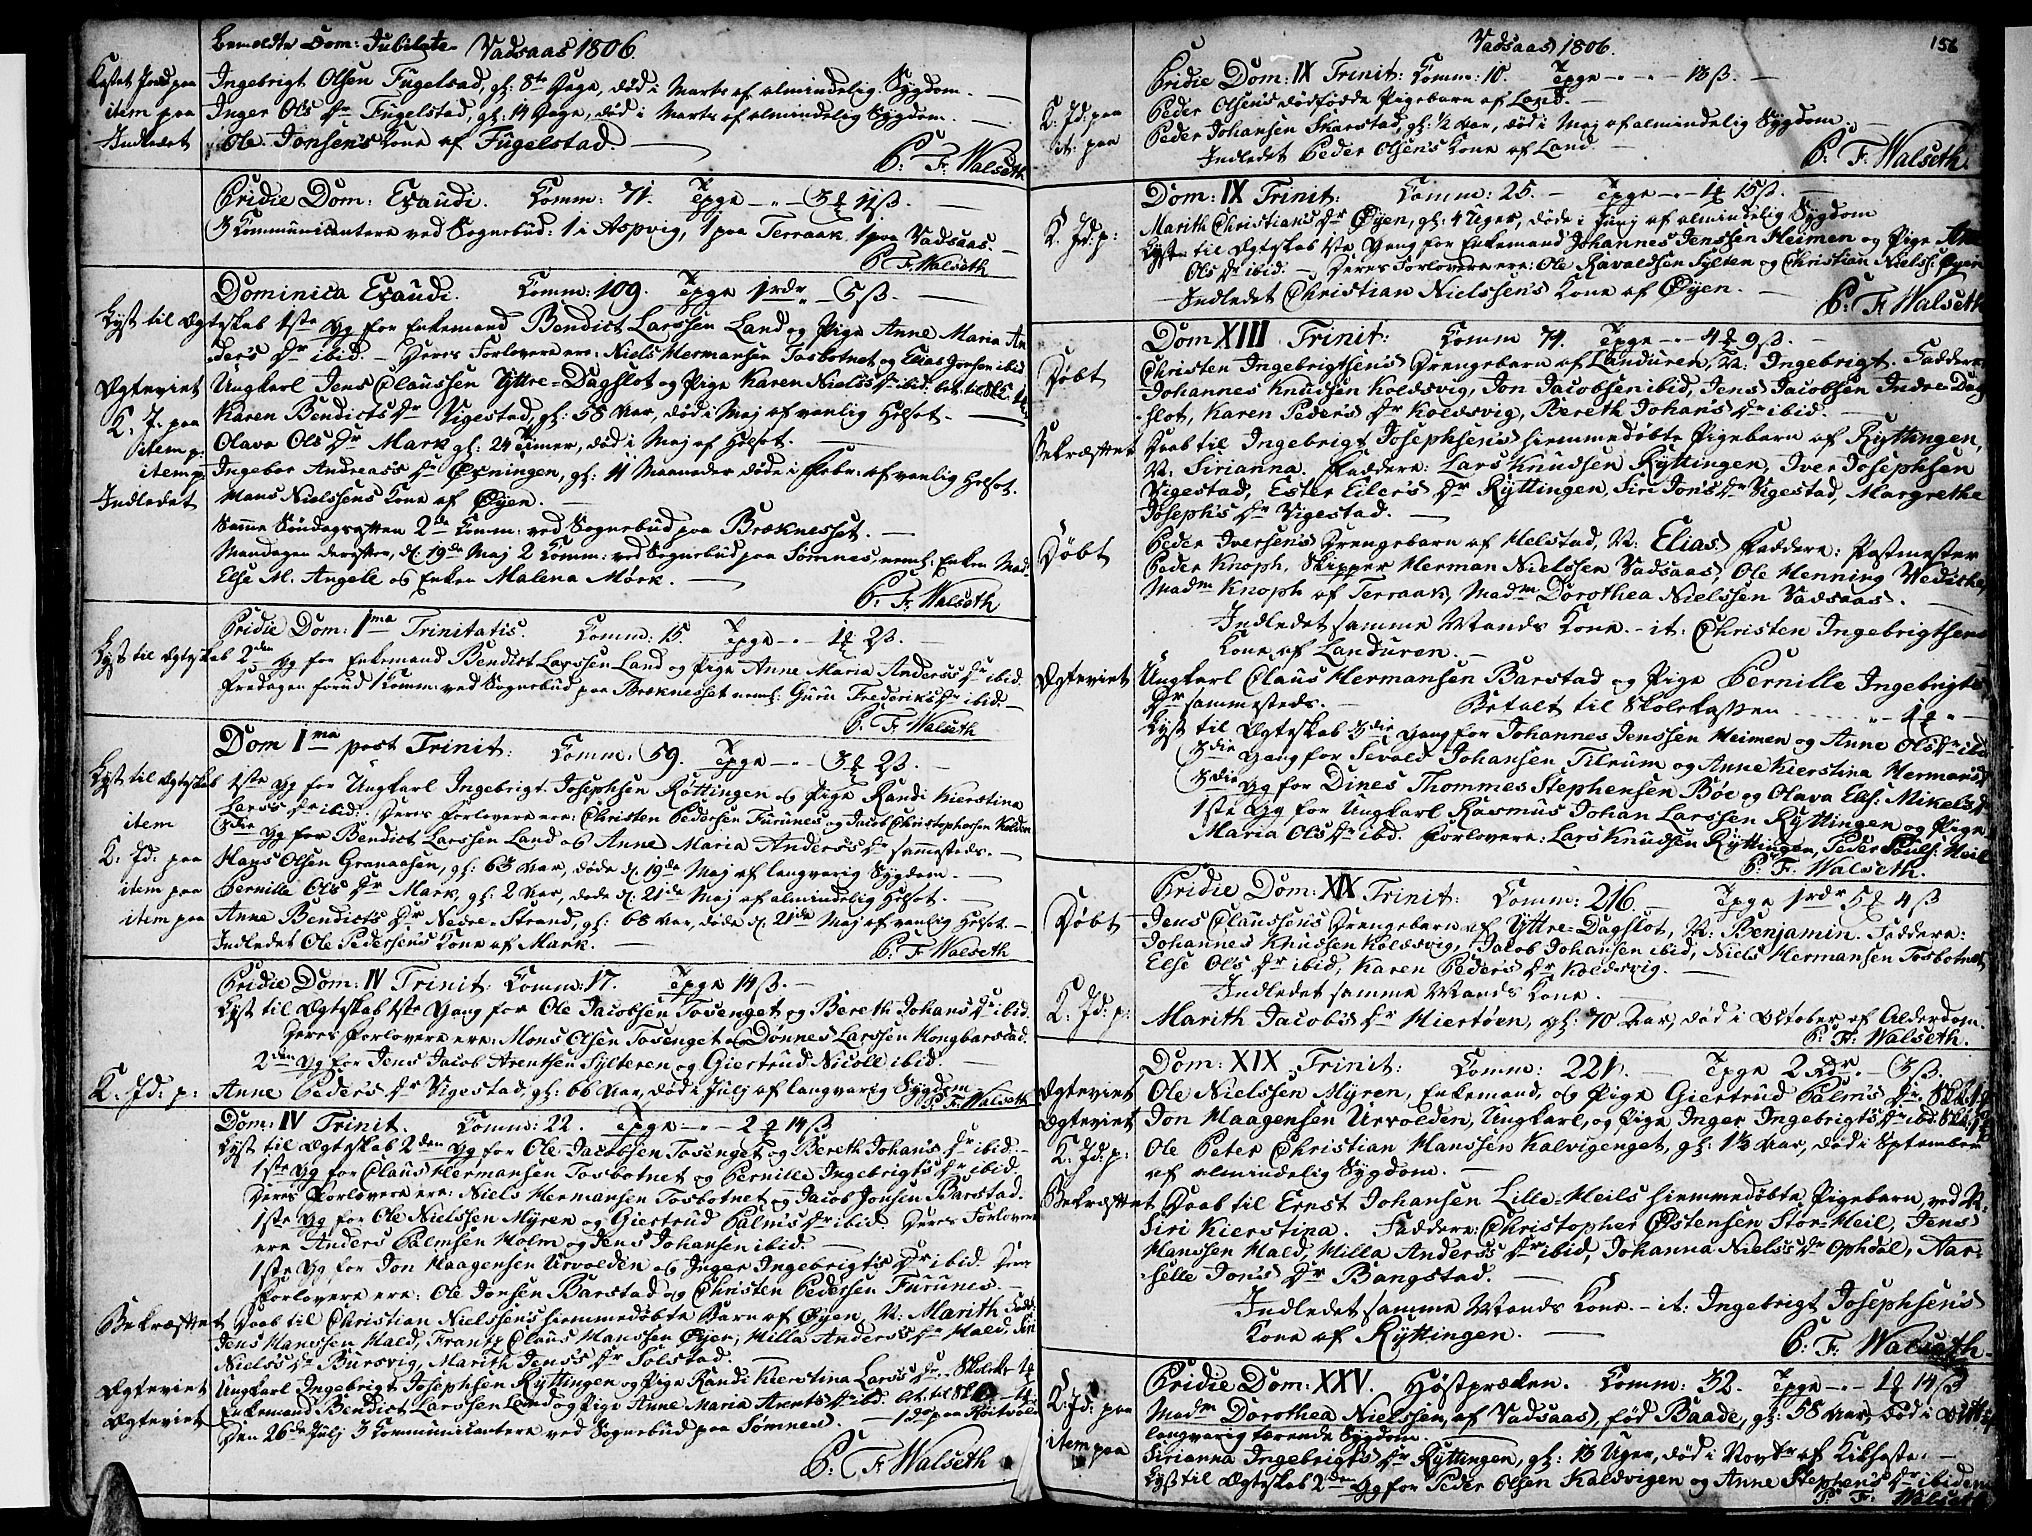 bemeldte Dom: Jubilate. Vadsaas 1806.
Kastet Jord paa Ingebrigt Olsen Fugelstad, gl: 8te Dage, død i Marts af almindelig Sygdom.
item paa Inger Ols Dr Fugelstad, gl: 14 Dage, død i Marts af almindelig Sygdom.
Indledet Ole Jonsen's Kone af Fugelstad.
P: F. Walseth
Pridie Dom: Exaudi. Komm: 71. Tpge -"- 3 11ß.
3 Kommunicantere ved Sognebud: 1 i Aspvig, 1 paa Terraak, 1 paa Vadsaas.
P. F. Walseth
Dominica Exaudi. Komm: 109. Tpge 1rdr " 5ß.
Lyst til Ægteskab 1ste Gg for Enkemand Bendict Larssen Land og Pige Anne Maria An
ders Dr ibid. - Deres Forlovere ere: Niels Hermansen Tosbotnet og Elias Jonsen ibid
Ægteviet Ungkarl Jens Claussen Yttre-Dagslot og Pige Karen Niels's Dr ibid.
K. J. paa Karen Bendicts Dr Vigestad, gl: 58 Aar, død i Maj af vanlig Helsot.
item p: Olava Ols Dr Mark gl: 24 Timer, død i Maj af Helsot.
item p: Ingebor Andreas's Dr Øxningen, gl: 11 Maaneder døde i Febr: af vanlig Helsot.
Indledet Hans Nielssens Kone af Øyen.
Samme Søndagsaften 2de Komm: ved Sognebud paa Bræknesset.
Mandagen derefter, d. 19de Maj 2 Komm: ved Sognebud paa Sømnes, neml: Enken Mad
Else M. Angell og Enken Malena Mørk.
P: F. Walseth
Pridie Dom: 1ma Trinitatis. Komm: 15. Tpge -"- 1 2ß.
Lyst til Ægteskab 2den Gg for Enkemand Bendict Larssen Land og Pige Anne Maria Anders's Dr ibid.
Fredagen forud 1 Komm: ved Sognebud paa Bræknesset neml: Guru Frederiks Dr ibid.
P: F. Walseth
Dom 1ma post Trinit: Komm: 59. Tpge -"- 3 2ß.
Lyst til Ægteskab 1ste Gg for Ungkarl Ingebrigt Josephsen Røttingen og Pige Randi Kierstina
Lars's Dr ibid: Deres Forlovere ere: Christen Pedersen Furunes og Jacob Christophersen
item 3die Gg for Bendict Larssen Land og Anne Maria Anders's Dr sammesteds.
K: Jd: paa Hans Olsen Granaasen, gl: 63 Aar, døde d. 19de Maj af langvarig Sygdom.
item paa Pernille Ols Dr Mark, gl: 2 Aar, døde d. 21de Maj af almindelig Helsot.
item paa Anne Bendict's Dr Nedre-Strand, gl: 68 Aar, døde d. 21de Maj af vanlig Helsot.
Indledet Ole Pedersens Kone af Mark.
P: F. Walseth
Pridie Dom: IV Trinit: Komm: 17. Tpge 14ß.
Lyst til Ægteskab 1ste Gang for Ole Jacobsen Tosenget og Bereth Johans Dr ibid.
Deres Forlovere ere: Mons Olsen Tosenget og Dønnes Larssen Hongbarstad.
2den Gg for Jens Jacob Arentsen Sylteren og Giertrud Nicoll ibid.
K: Jd: p: Anne Peder's Dr Vigestad, gl: 66 Aar, død i Julj af langvarig Sygdom
P. F. Walseth
Dom: IV Trinit. Komm: 22. Tpge -"- 2 14ß
Lyst til Ægteskab 2den Gg for Ole Jacobsen Tosenget og Bereth Johans Dr ibid.
1ste Gg for Claus Hermansen Tosbotnet og Pernille Ingebrigts Dr ibid.
Deres Forlovere ere: Niels Hermansen Tosbotnet og Jacob Jonsen Barstad.
1ste Gg for Ole Nielssen Myren og Giertrud Palms Dr ibid. Deres Forlovere
ere Anders Palmsen Holm og Jens Johansen ibid.
1ste Gg for Jon Haagensen Urvolden og Inger Ingebrigts Dr ibid.
Forlovere ere: Ole Jonsen Barstad og Christen Pedersen Furunes.
Bekræftet Daab til Christian Nielssens hiemmedøbte Barn af Øyen, N: Marith
Jens Hanssen Hald, Frantz Claus Hanssen Øyen, Milla Anders's Dr Hald, Siri
Niels's Dr Bursvig, Marith Jens's Dr Solstad.
Ægteviet Ungkarl Ingebrigt Josephsen Ryttingen og Pige Randi Kierstina Lars's Dr
Ægteviet Enkemand Bendict Larssen Land og Pige Anne Maria Arents Dr ibid.
Den 26de Julj 3 Kommunicantere ved Sognebud paa Sømnes.
P: F. Walseth
Vadsaas 1806. 156
Pridie Dom: IX Trinit: Komm: 10. Tpge -"- 13ß.
K: Jd: paa Peder Olsen's dødfødde Pigebarn af Land.
it: paa Peder Johansen Skarstad, gl: 1/2 Aar, død i Maj af almindelig Sygdom.
Indledet Peder Olsen's Kone af Land.
P: F. Walseth
Dom: IX Trinit: Komm: 25. Tpge -"- 1 15ß.
K. Jd: p: Marith Christian's Dr Øyen, gl: 4 Uger, døde i Junj af almindelig Sygdom
Lyst til Ægteskab 1ste Gang for Enkemand Johannes Jenssen Heimen og Pige Anne
Ols Dr ibid. - Deres Forlovere ere: Ole Ravaldsen Sylten og Christian Nielss: Øyen
Indledet Christian Nielssen's Kone af Øyen.
P: F. Walseth
Dom XIII Trinit: Komm 74. Tpge -"- 4 9ß.
Døbt Christen Ingebrigtsens Drengebarn af Landuren, N: Ingebrigt. Faddere
Johannes Knudsen Koldsvig, Jon Jacobsen ibid, Jens Jacobsen Indre-Dag
slot, Karen Peder's Dr Koldsvig, Bereth Johan's Dr ibid.
Bekræftet Daab til Ingebrigt Josephsen's hiemmedøbte Pigebarn af Ryttingen,
N: Sirianna. Faddere: Lars Knudsen Ryttingen, Iver Josephsen
Vigestad, Ester Eiler's Dr Ryttingen, Siri Jon's Dr Vigestad, Margrethe
Joseph's Dr Vigestad.
Døbt Peder Iversen's Drengebarn af Helstad, N: Elias. Faddere: Postmester
Peder Knoph, Skipper Herman Nielssen Vadsaas, Ole Henning Wediche,
Madm Knoph af Terraak, Madm Dorothea Nielssen Vadsaas.
Indledet samme Mands Kone. - it: Christen Ingebrigtsens
Kone af Landuren.
Ægteviet Ungkarl Claus Hermansen Barstad og Pige Pernille Ingebrigts
Dr sammesteds. Betalt til Skolekassen
Lyst til Ægteskab 3die Gang for Johannes Jenssen Heimen og Anne Ols Dr ibid
3die Gang for Sevald Johansen Tilrum og Anne Kierstina Hermans Dr
3die Gg for Dines Thommes Stephensen Bøe og Olava Elis: Mikels Dr
1ste Gg for Ungkarl Rasmus Johan Larssen Ryttingen og Pige
Maria Ols Dr ibd. Forlovere: Lars Knudsen Ryttingen, Peder Pouls: Heil
P: F. Walseth.
Pridie Dom: XIX Trinit: Komm: 216 Tpge 1rdr 5 4ß
Døbt Jens Claussens Drengebarn af Yttre-Dagslot, N: Benjamin. Faddere:
Johannes Knudsen Koldsvig, Jakob Johansen ibid, Niels Hermansen Tosbotnet,
Else Ol's Dr ibid, Karen Peder's Dr Koldsvig.
Indledet samme Mands Kone.
K: Jd: p: Marith Jacob's Dr Hiertøen, gl: 70 Aar, død i October af Alderdom.
P: F. Walseth.
Dom: XIX Trinit: Komm: 221. Tpge 2 Rdr. - 3ß.
Ægteviet Ole Nielssen Myren, Enkemand, og Pige Giertrud Palm's Dr
Ægteviet Jon Haagensen Urvolden, Ungkarl, og Pige Inger Ingebrigts Dr ibd.
K: Jd: p: Ole Peter Christian Hanssen Kalvigenget, gl: 1/3 Aar, død i September
af almindelig Sygdom.
Bekræftet Daab til Ernst Johansen Lille-Heils hiemmedøbte Pigebarn, ved N:
Siri Kierstina. Faddere: Christopher Østensen Stor-Heil, Jens
Hanssen Hald, Milla Anders's Dr ibid, Johanna Niels's Dr Ophdal, Aar-
selle Jon's Dr Bangstad.
Indledet samme Mands Kone. - it: Ingebrigt Josephsen's
Kone af Ryttingen.
P: F. Walseth.
Pridie Dom: XXV. Høstprædken. Komm: 32. Tpge -"- 1 14ß
K: Jd: paa Madm Dorothea Nielssen, af Vadsaas, fød Baade, gl: 58 Aar, død i
langvarig tærende Sygdom.
item paa Sirianna Ingebrigts Dr Ryttingen, gl: 13 Uger, død i Novbr af Kikhoste.
Lyst til Ægteskab 2den Gg for Peder Olsen Kaldvigen og Anne Stephen's Dr ibidem
P: F: Walseth